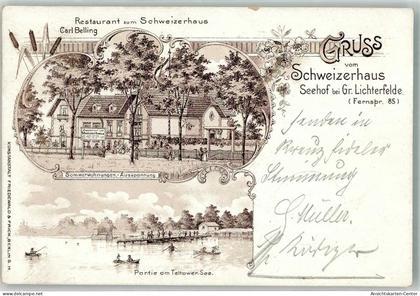 Restaurant zum Schweizerhaus
Carl Belling
Gruss
vom
Schweizerhaus
Seehof bei Gr. Lichterfelde.
(Fernspr. 85)
Senden in
Kreuz fideler
Stimmung
Müller.
Sommerwohnungen - Ausspannung
Partie am Teltower-See.
KUNSTANSTALT FRIEDEWALD & FRICK, BERLIN S. 14.
© Ansichtskarten-Center